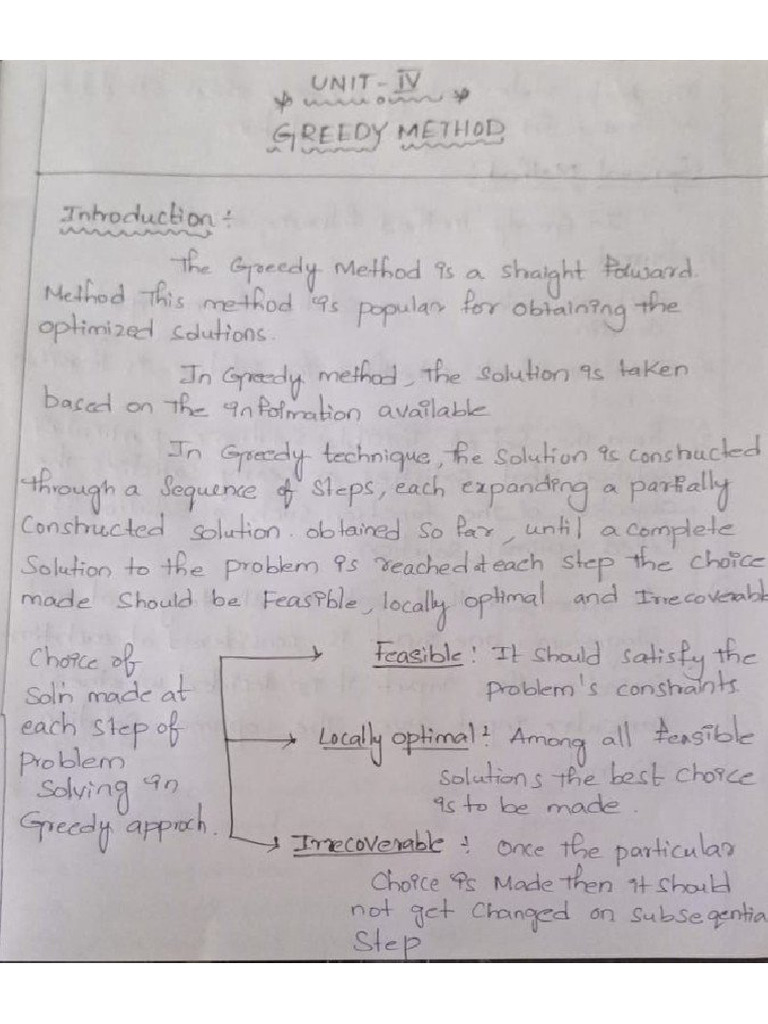 UNIT - IV
GREEDY METHOD
Introduction :
The Greedy Method is a straight forward
Method This method is popular for obtaining the
optimized solutions.
In Greedy method, the solution is taken
based on the information available
In Greedy technique, the solution is constructed
through a sequence of steps, each expanding a partially
constructed solution. obtained so far, until a complete
Solution to the problem is reached at each step the choice
made should be Feasible, locally optimal and Irrecoverabl
Choice of
Soln made at
each step of
problem
Solving in
Greedy approch.
Feasible : It should satisfy the
problem's constraints
Locally optimal : Among all feasible
solutions the best choice
is to be made.
Irrecoverable : Once the particular
Choice is Made then it should
not get Changed on subseqentia
Step